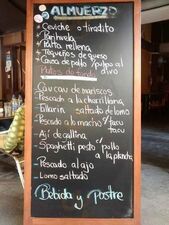 ALMUERZO
Ceviche o tiradito
Parihuela
Papa rellena
Tequeños de queso
Causa de pollo / pulpo al olivo
Platos de fondo
Cau cau de mariscos
Pescado a la chorrillana
Tallarin saltado de lomo
Pescado a lo macho / tacu tacu
Ají de gallina
Spaghetti pesto c/ pollo a la plancha
Pescado al ajo
Lomo saltado
Bebida y Postre